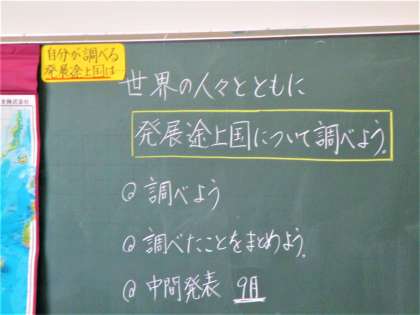 自分が調べる
発展途上国は…
世界の人々とともに
発展途上国について調べよう。
@ 調べよう
@ 調べたことをまとめよう。
@ 中間発表 9月
株式会社